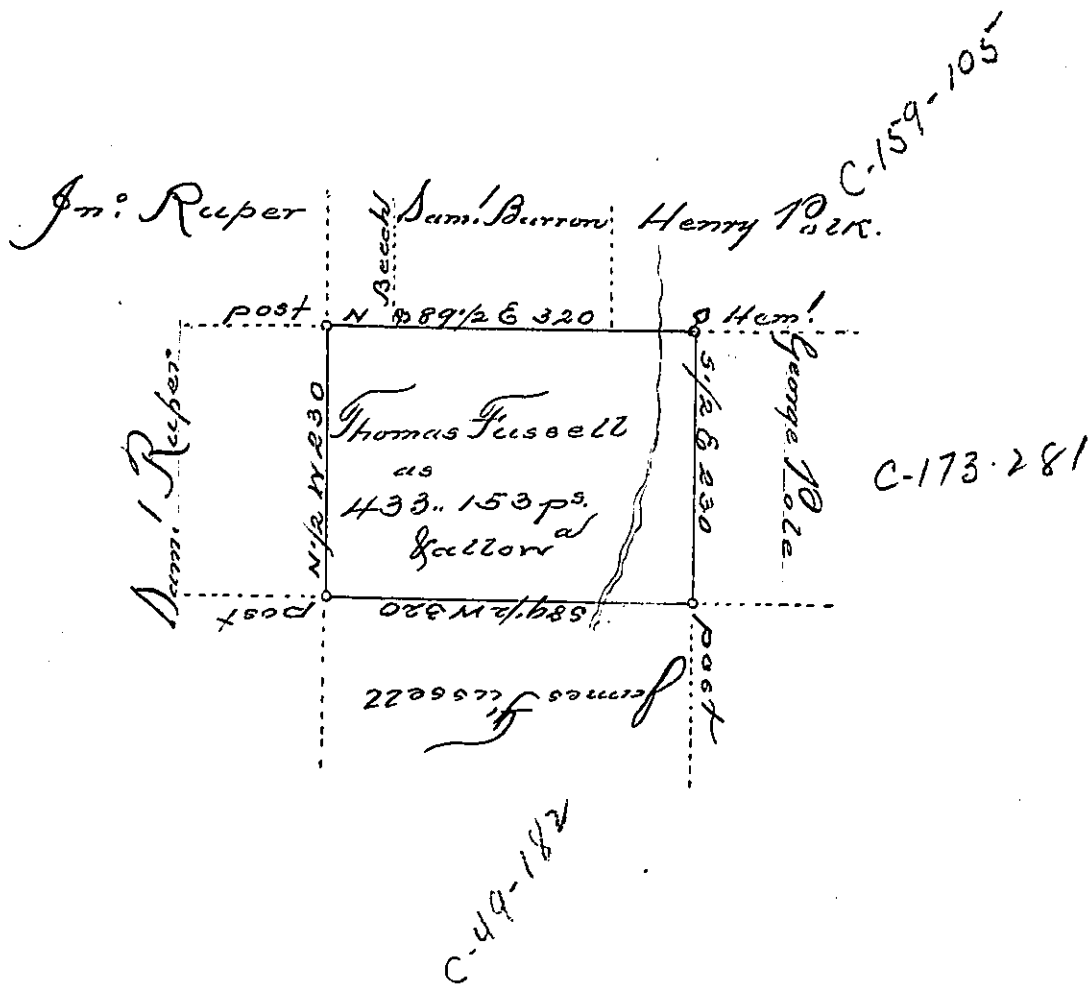 C-159-105
Jn.º Ruper
Beech
Sam.l Barron
Henry Polk.
post
N 89 1/2 E 320
Hem.l
Sam.l Ruper
N 1/2 W 230
Thomas Fussell
as
433.. 153 ps.
& allow a
S 1/2 E 230
George Pole
C-173-281
post
S 89 1/2 W 320
post
James Fussell
C-49-182